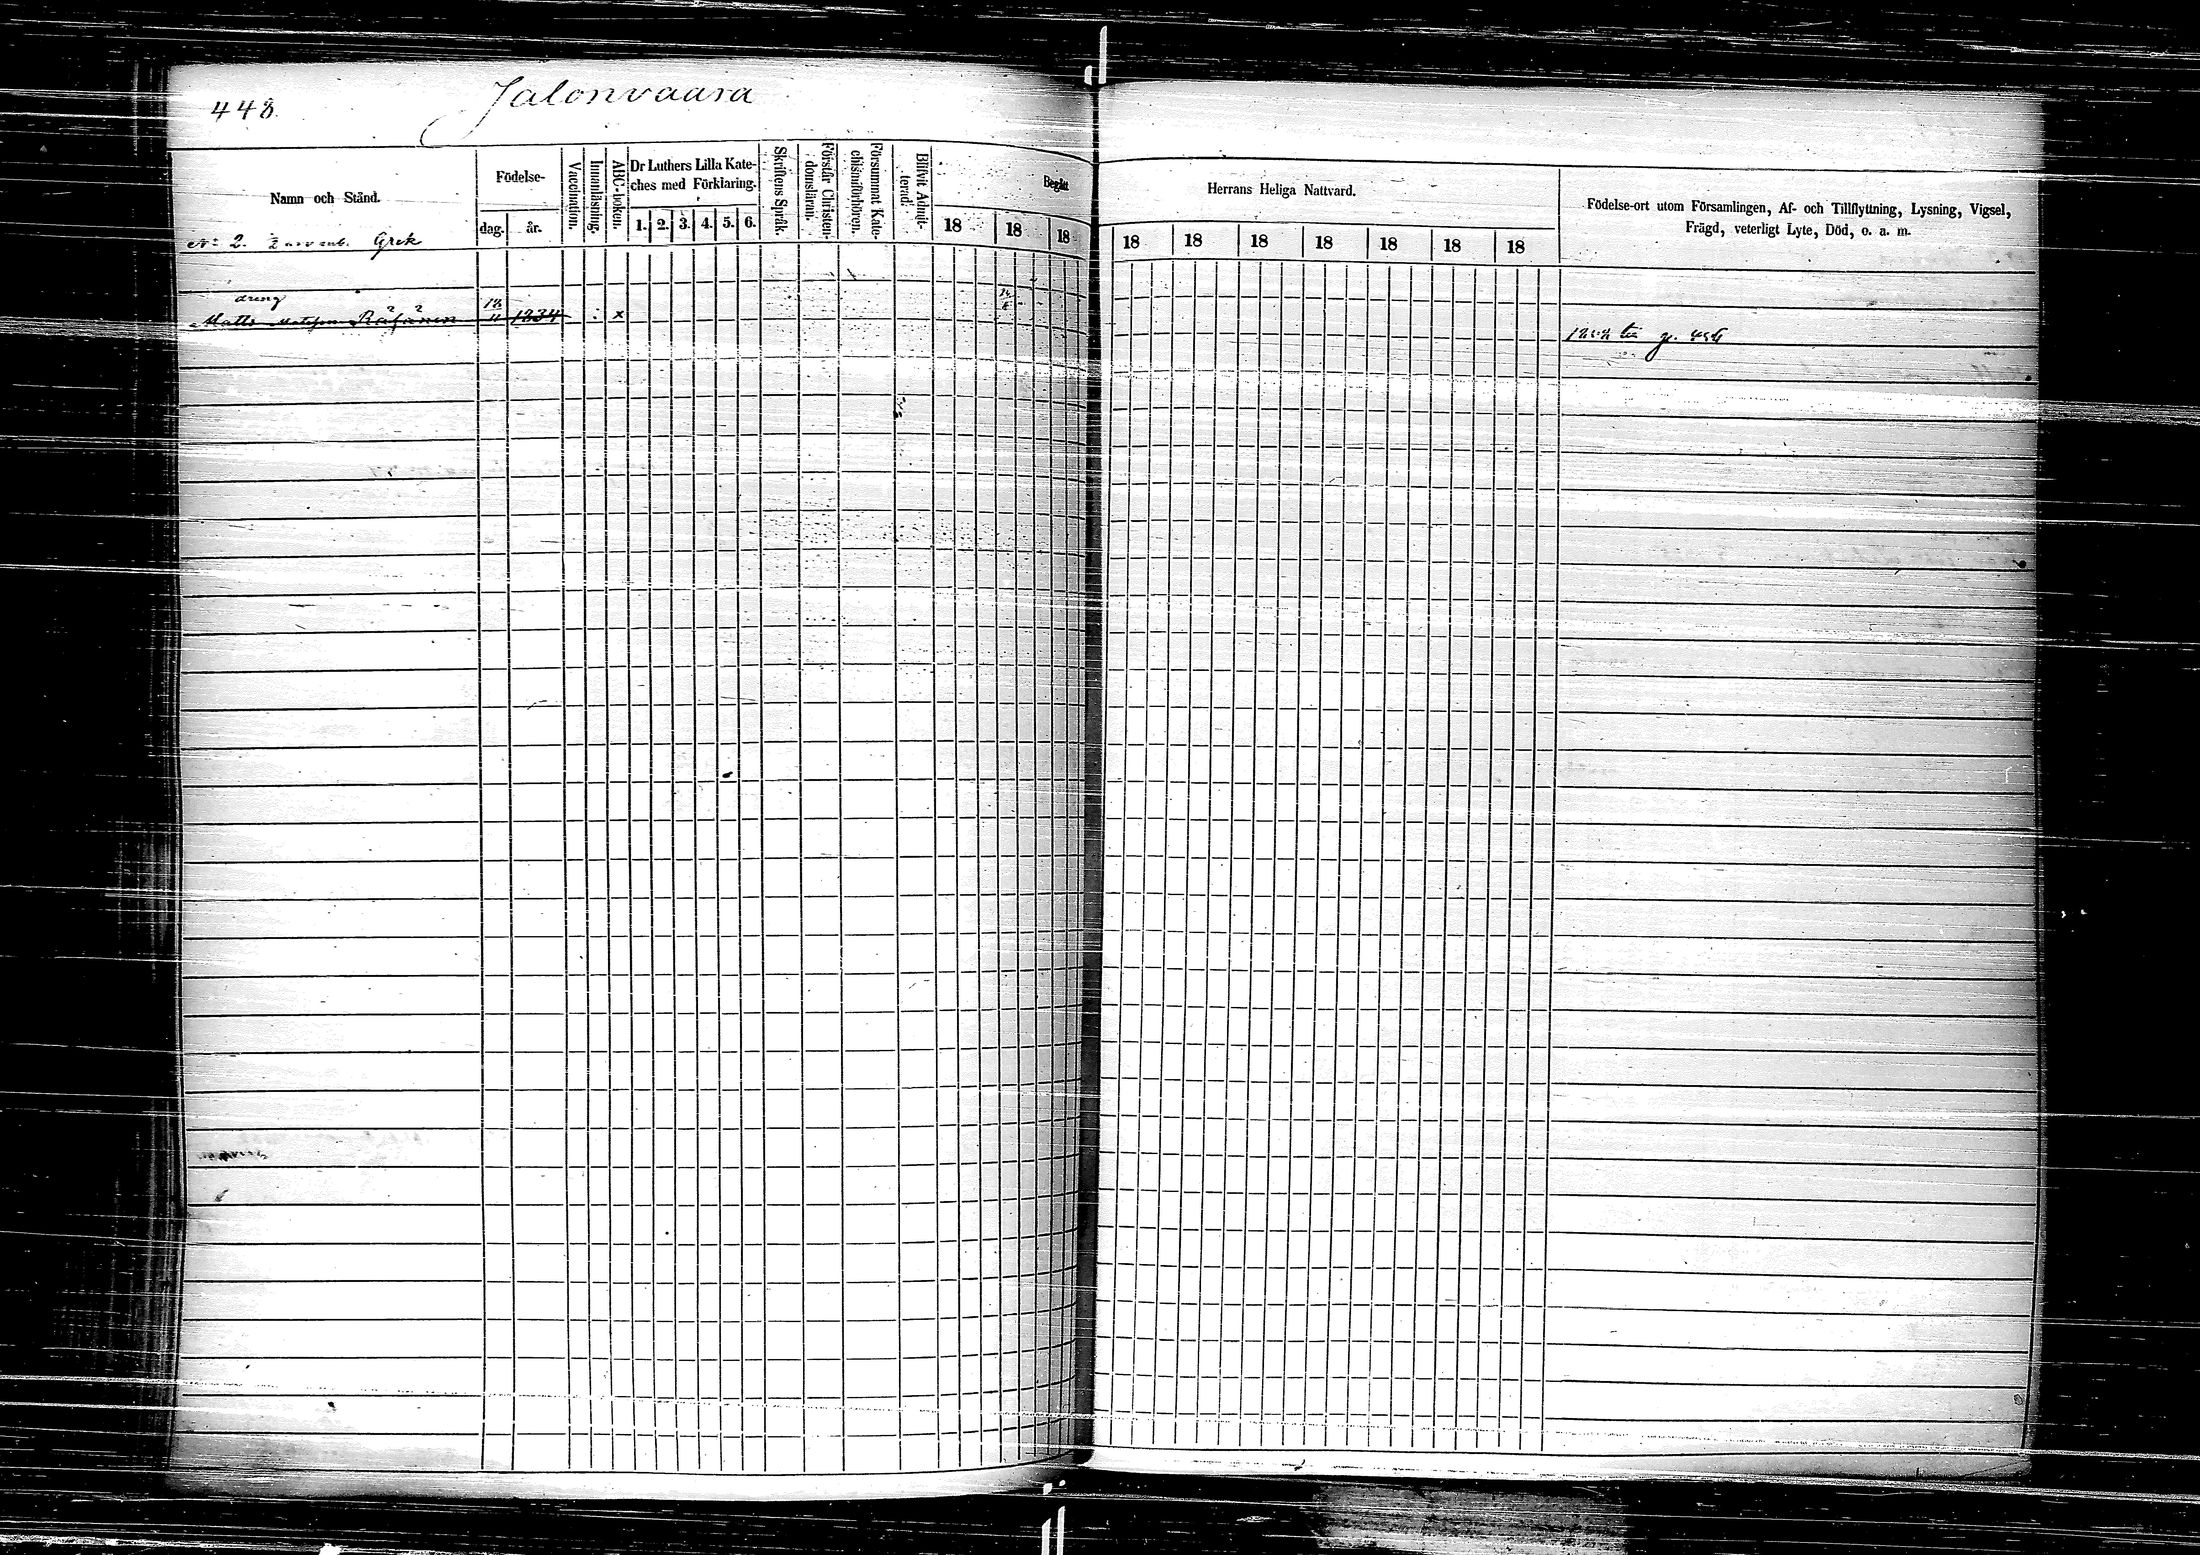 448.
Jalonvaara
Namn och Stånd.
Födelse-
dag.
år.
Vaccination.
Innanläsning.
ABC-boken.
Dr Luthers Lilla Kate-
ches med Förklaring.
1. 2. 3. 4. 5. 6.
Skriftens Språk.
Förstår Christen-
domsläran.
Försummat Kate-
chismiförhören.
Blifvit Admit-
terad.
Begått
18 18 18
Herrans Heliga Nattvard.
18 18 18 18 18 18 18
Födelse-ort utom Församlingen, Af- och Tillflyttning, Lysning, Vigsel,
Frägd, veterligt Lyte, Död, o. a. m.
No 2. Grek
dreng
Matts Räsänen 18/11 1834 x
till p.